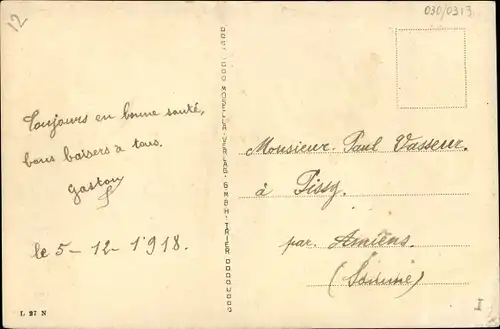 12
030/0313
Toujours en bonne santé,
bons baisers à tous.
Gaston
le 5-12-1918.
MOSELLA-VERLAG G.M.B.H. TRIER
Monsieur Paul Vasseur.
à Pissy.
par Amiens.
(Somme)
L 27 N